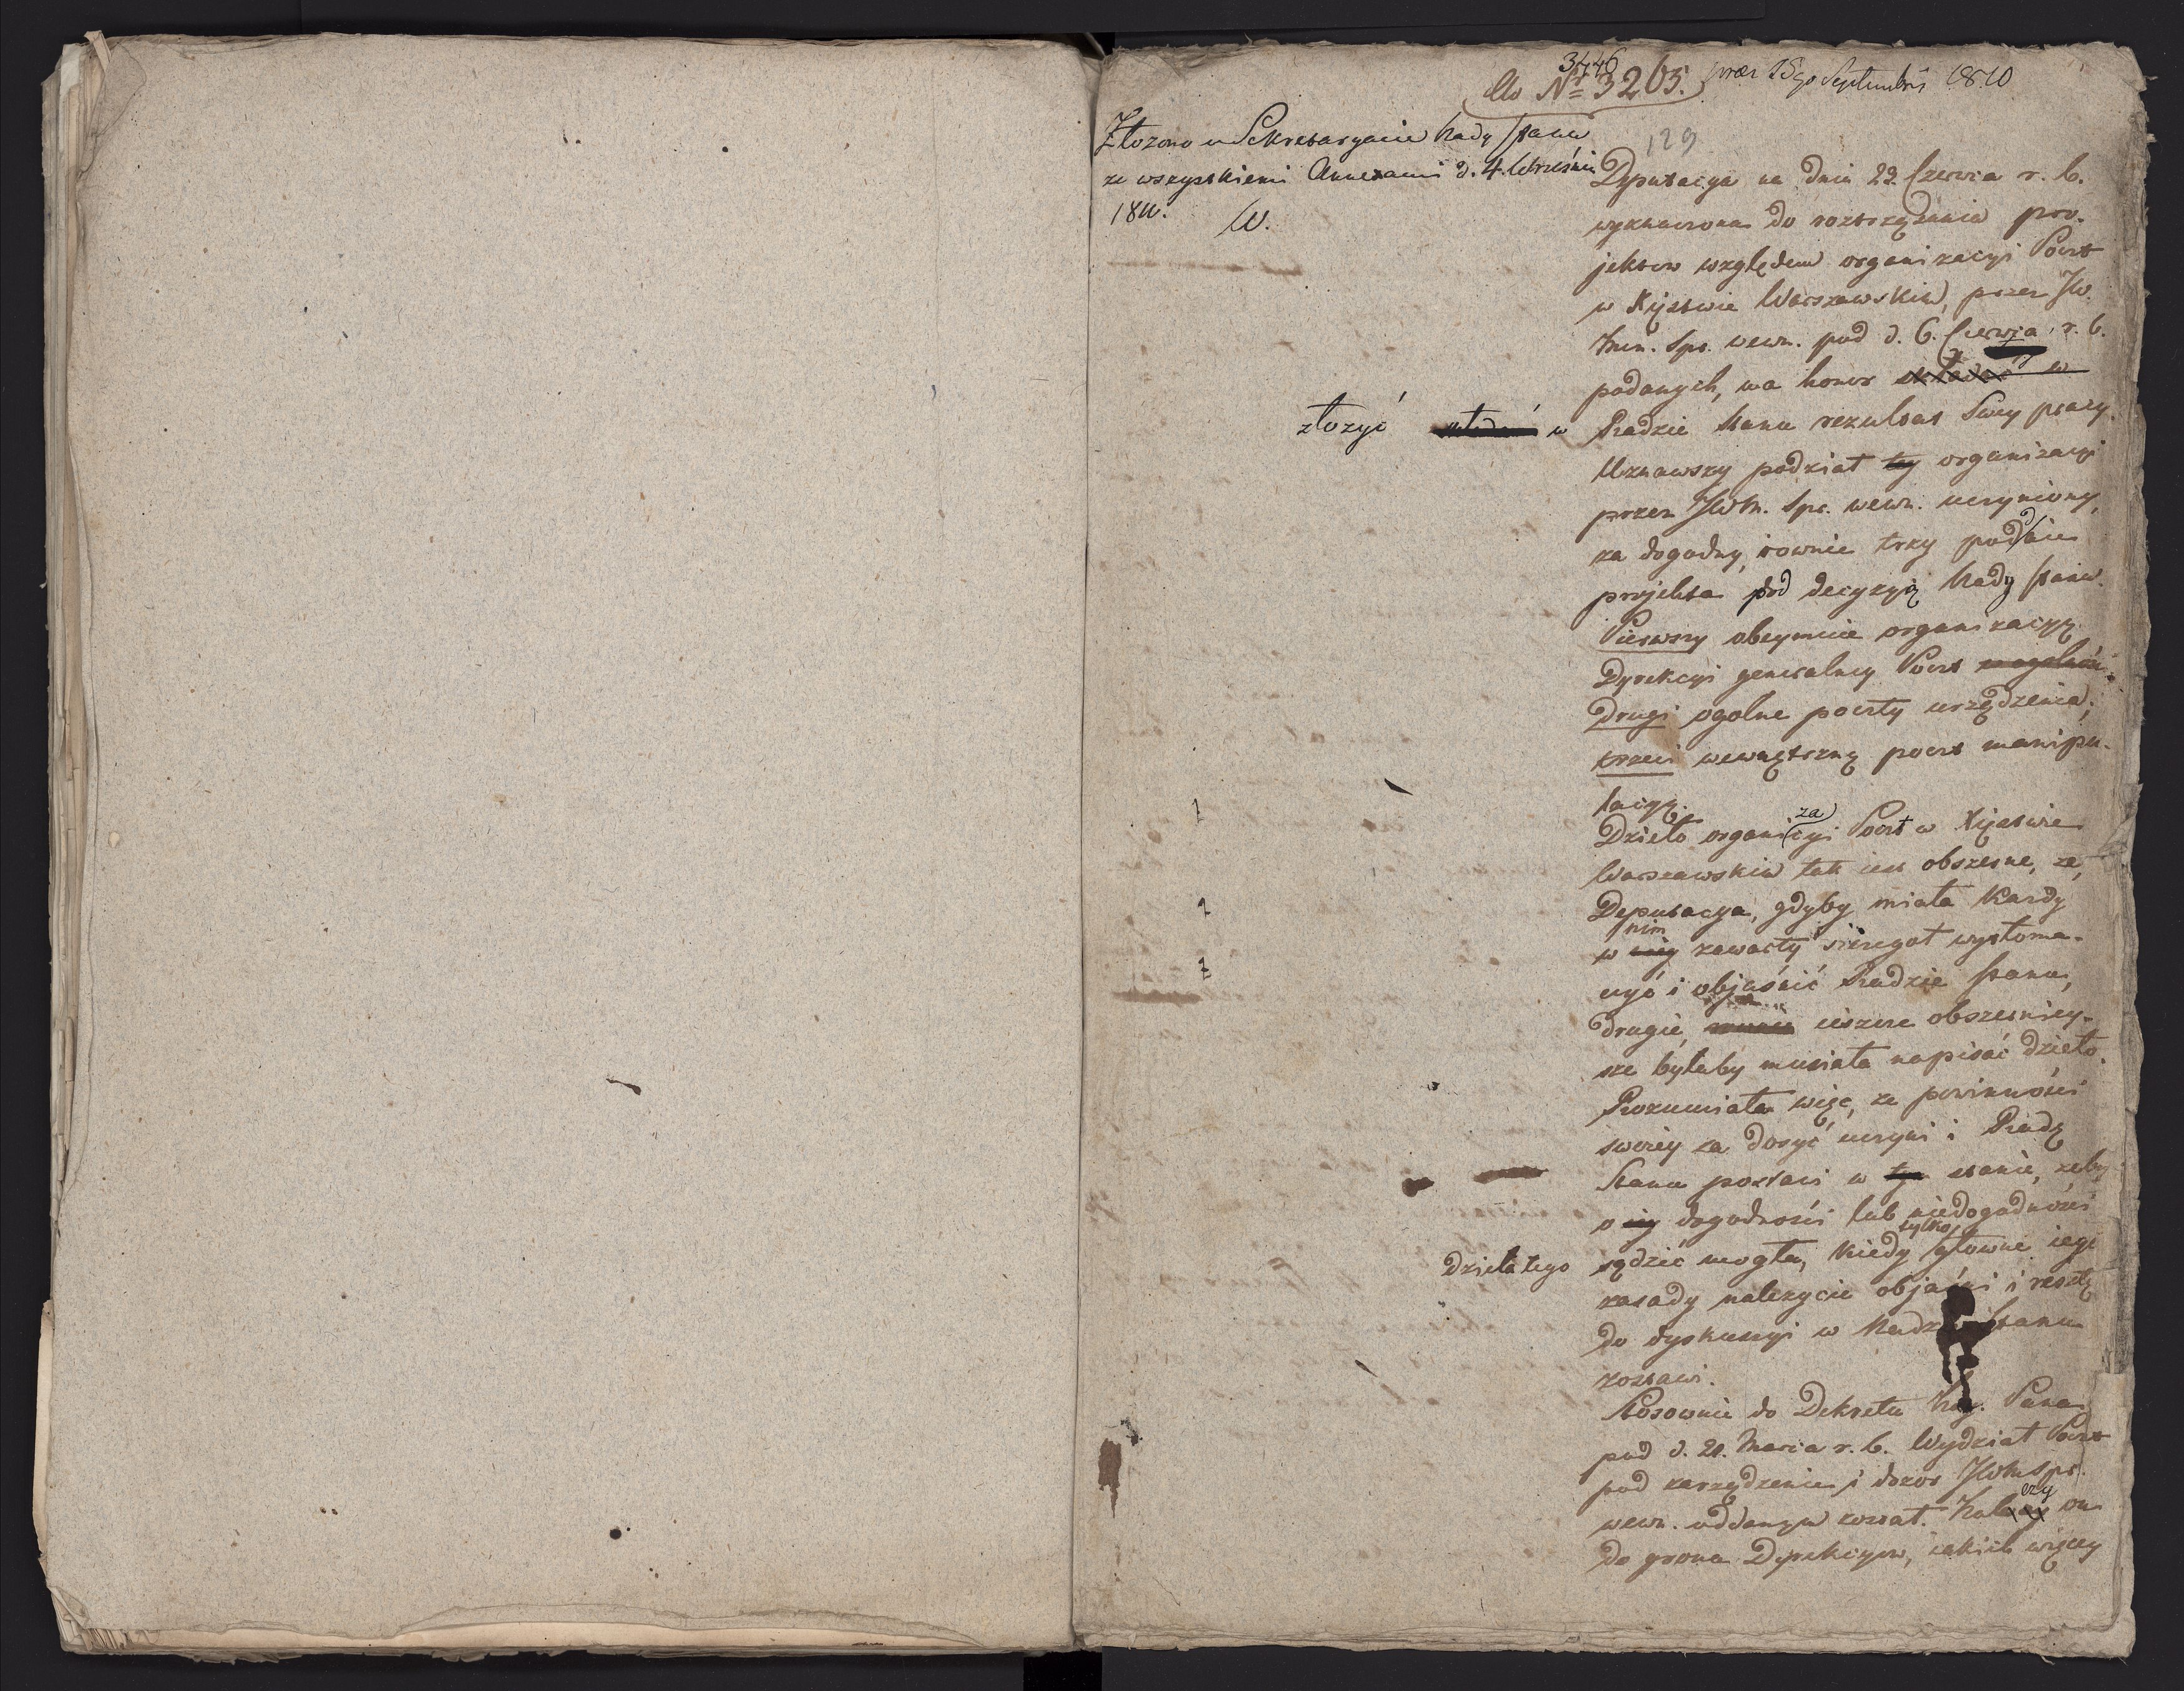 3446
ado Nº 3265. præs 15go Septembris 1810
129
Złozono w Sekretaryacie Rady Stanu
ze wszystkiemi Annexami d. 4. Września
1810. W.
Deputacya na dniu 29. Czerwca r. b.
wyznaczona do roztrząśnienia pro-
jektow względem organizacyi Poczt
w Xięstwie Warszawskim, przez JW.
Min. Spr. wewn. pod d. 6. Czerwca r. b.
podanych, ma honor składać w
złozyć w Radzie Stanu rezultat Swey pracy.
Uznawszy podział tey organizacyi
przez JWM. Spr. wewn. uczyniony,
za dogodny, rownie trzy poddaie
projekta pod decyzyią Rady Stanu.
Pierwszy obeymuie organizacyą
Dyrekcyi generalney Poczt w ogolności
Drugi ogolne poczty urządzenia;
trzeci wewnętrzną poczt manipu-
lacyą.
Dzieło organizacyi Poczt w Xięstwie
Warszawskim tak iest obszerne, ze,
Deputacya, gdyby miała kazdy
w niey nim zawarty szczegoł wytłoma-
czyć i objaśnić Radzie Stanu,
drugie, ieszcze obszerniey-
sze byłaby musiała napisać dzieło.
Rozumiała więc, ze powinności
swoiey za dosyć uczyni i Radę
Stanu postawi w tym stanie, zeby
o iey dogodności lub niedogodności
dzieła tego sądzić mogła, kiedy tylko głowne iego
zasady nalezycie objaśni i resztę
do dyskussyi w Radzie Stanu
zostawi.
Stosownie do Dekretu Nay. Pana
pod d. 20. Marca r. b. Wydział Poczt
pod zarządzenie i dozor JWM Spr.
wewn. oddanym został. Nalezy on
do grona Dyrekcyow, iakich więcey